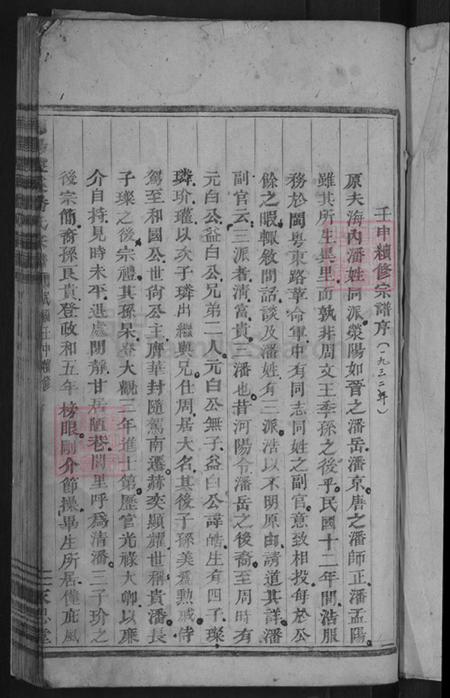 壬申續修宗譜序(一九三二年)
原夫海內潘姓同派滎陽如晉之潘岳潘京唐之潘師正潘孟陽
雖其所生異里而孰非周文王季孫之後乎民國十二年間浩服
務於閩粵東路革命軍中有同志同姓之副官意致相投每於公
餘之暇輒敘閒話談及潘姓有三派浩以不明原由請道其詳潘
副官云三派者清富貴三潘也昔河陽令潘岳之後裔至周時有
元白公益白公兄弟二人元白公無子益白公諱皓生有四子璨
璘玠瓘以次子璘出繼與兄仕周居大名其後子孫美勳戚侍
駕至和國公世尚公主膺華封隨駕南遷赫奕顯耀世稱貴潘長
子璨之後宗禮其孫杲春大觀三年進士第歷官光祿大卿以廉
介自持見時未平退處閒龍甘居陋巷閭里呼為清潘三子玠之
後宗簡裔孫良貴登政和五年榜眼剛介節操畢生所居僅庇風
續壬申續修